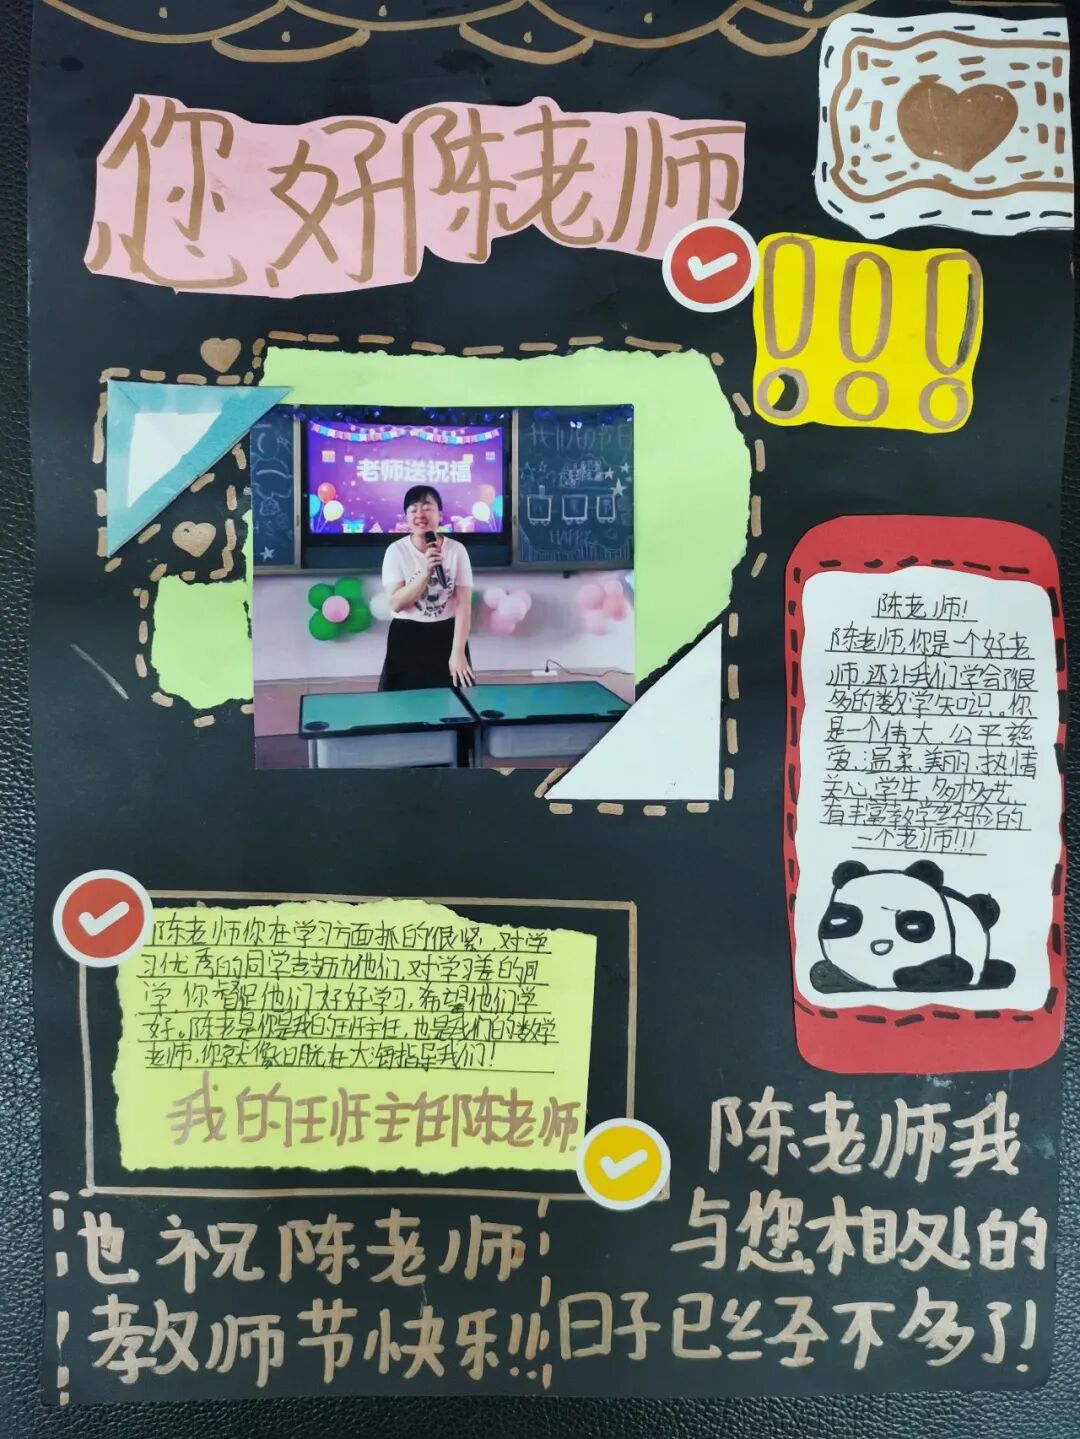 您好陈老师
!!!
老师送祝福
我们的节日
HAPPY
陈老师!
陈老师,你是一个好老
师,还让我们学会了很
多的数学知识。你
是一个伟大、公平、慈
爱、温柔、美丽、热情
关心学生、多才多艺、
有丰富教学经验的
一个老师!!!
陈老师你在学习方面抓的很紧,对学
习优秀的同学表扬他们,对学习差的同
学,你督促他们好好学习,希望他们学
好。陈老是你是我的班主任,也是我们的数学
老师,你就像 在大海指导我们!
我的班主任陈老师
陈老师我
与您相处的
日子已经不多了!
也祝陈老师
教师节快乐!!!